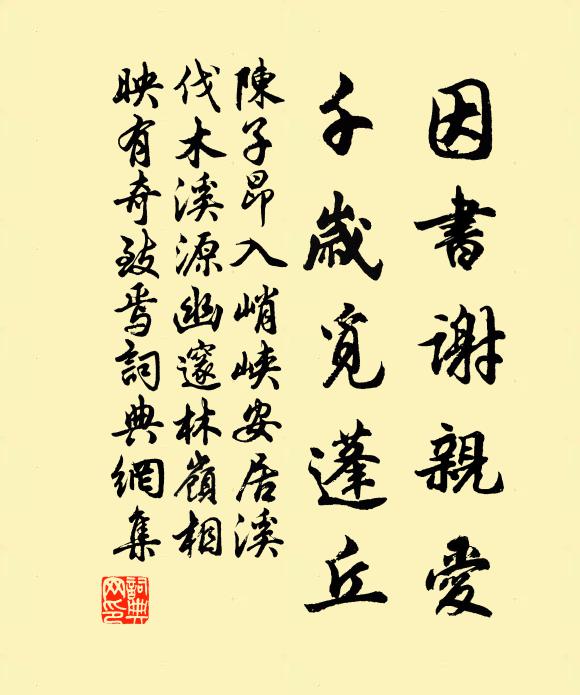 因書謝親愛
千歲覓蓬丘
陳子昂入峭峽安居溪
伐木溪源幽邃林嶺相
映有奇致焉詞典網集
詞典
网印